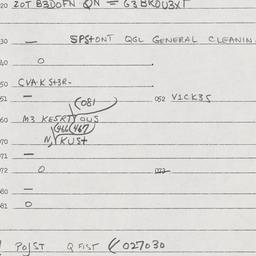 20 ZOT B3DOFN QN = G3BKOU3XT
30 — SPStONT QGL GENERAL CLEANIN
40 O
50 CVAKSt3R-
51 — 052 V1CK35
(081
60 M3 KESKTYOUS
(466(467
70 N, KUSt
71 —
72 O 073
80 —
81 O
POJST Q FIST ( 027030